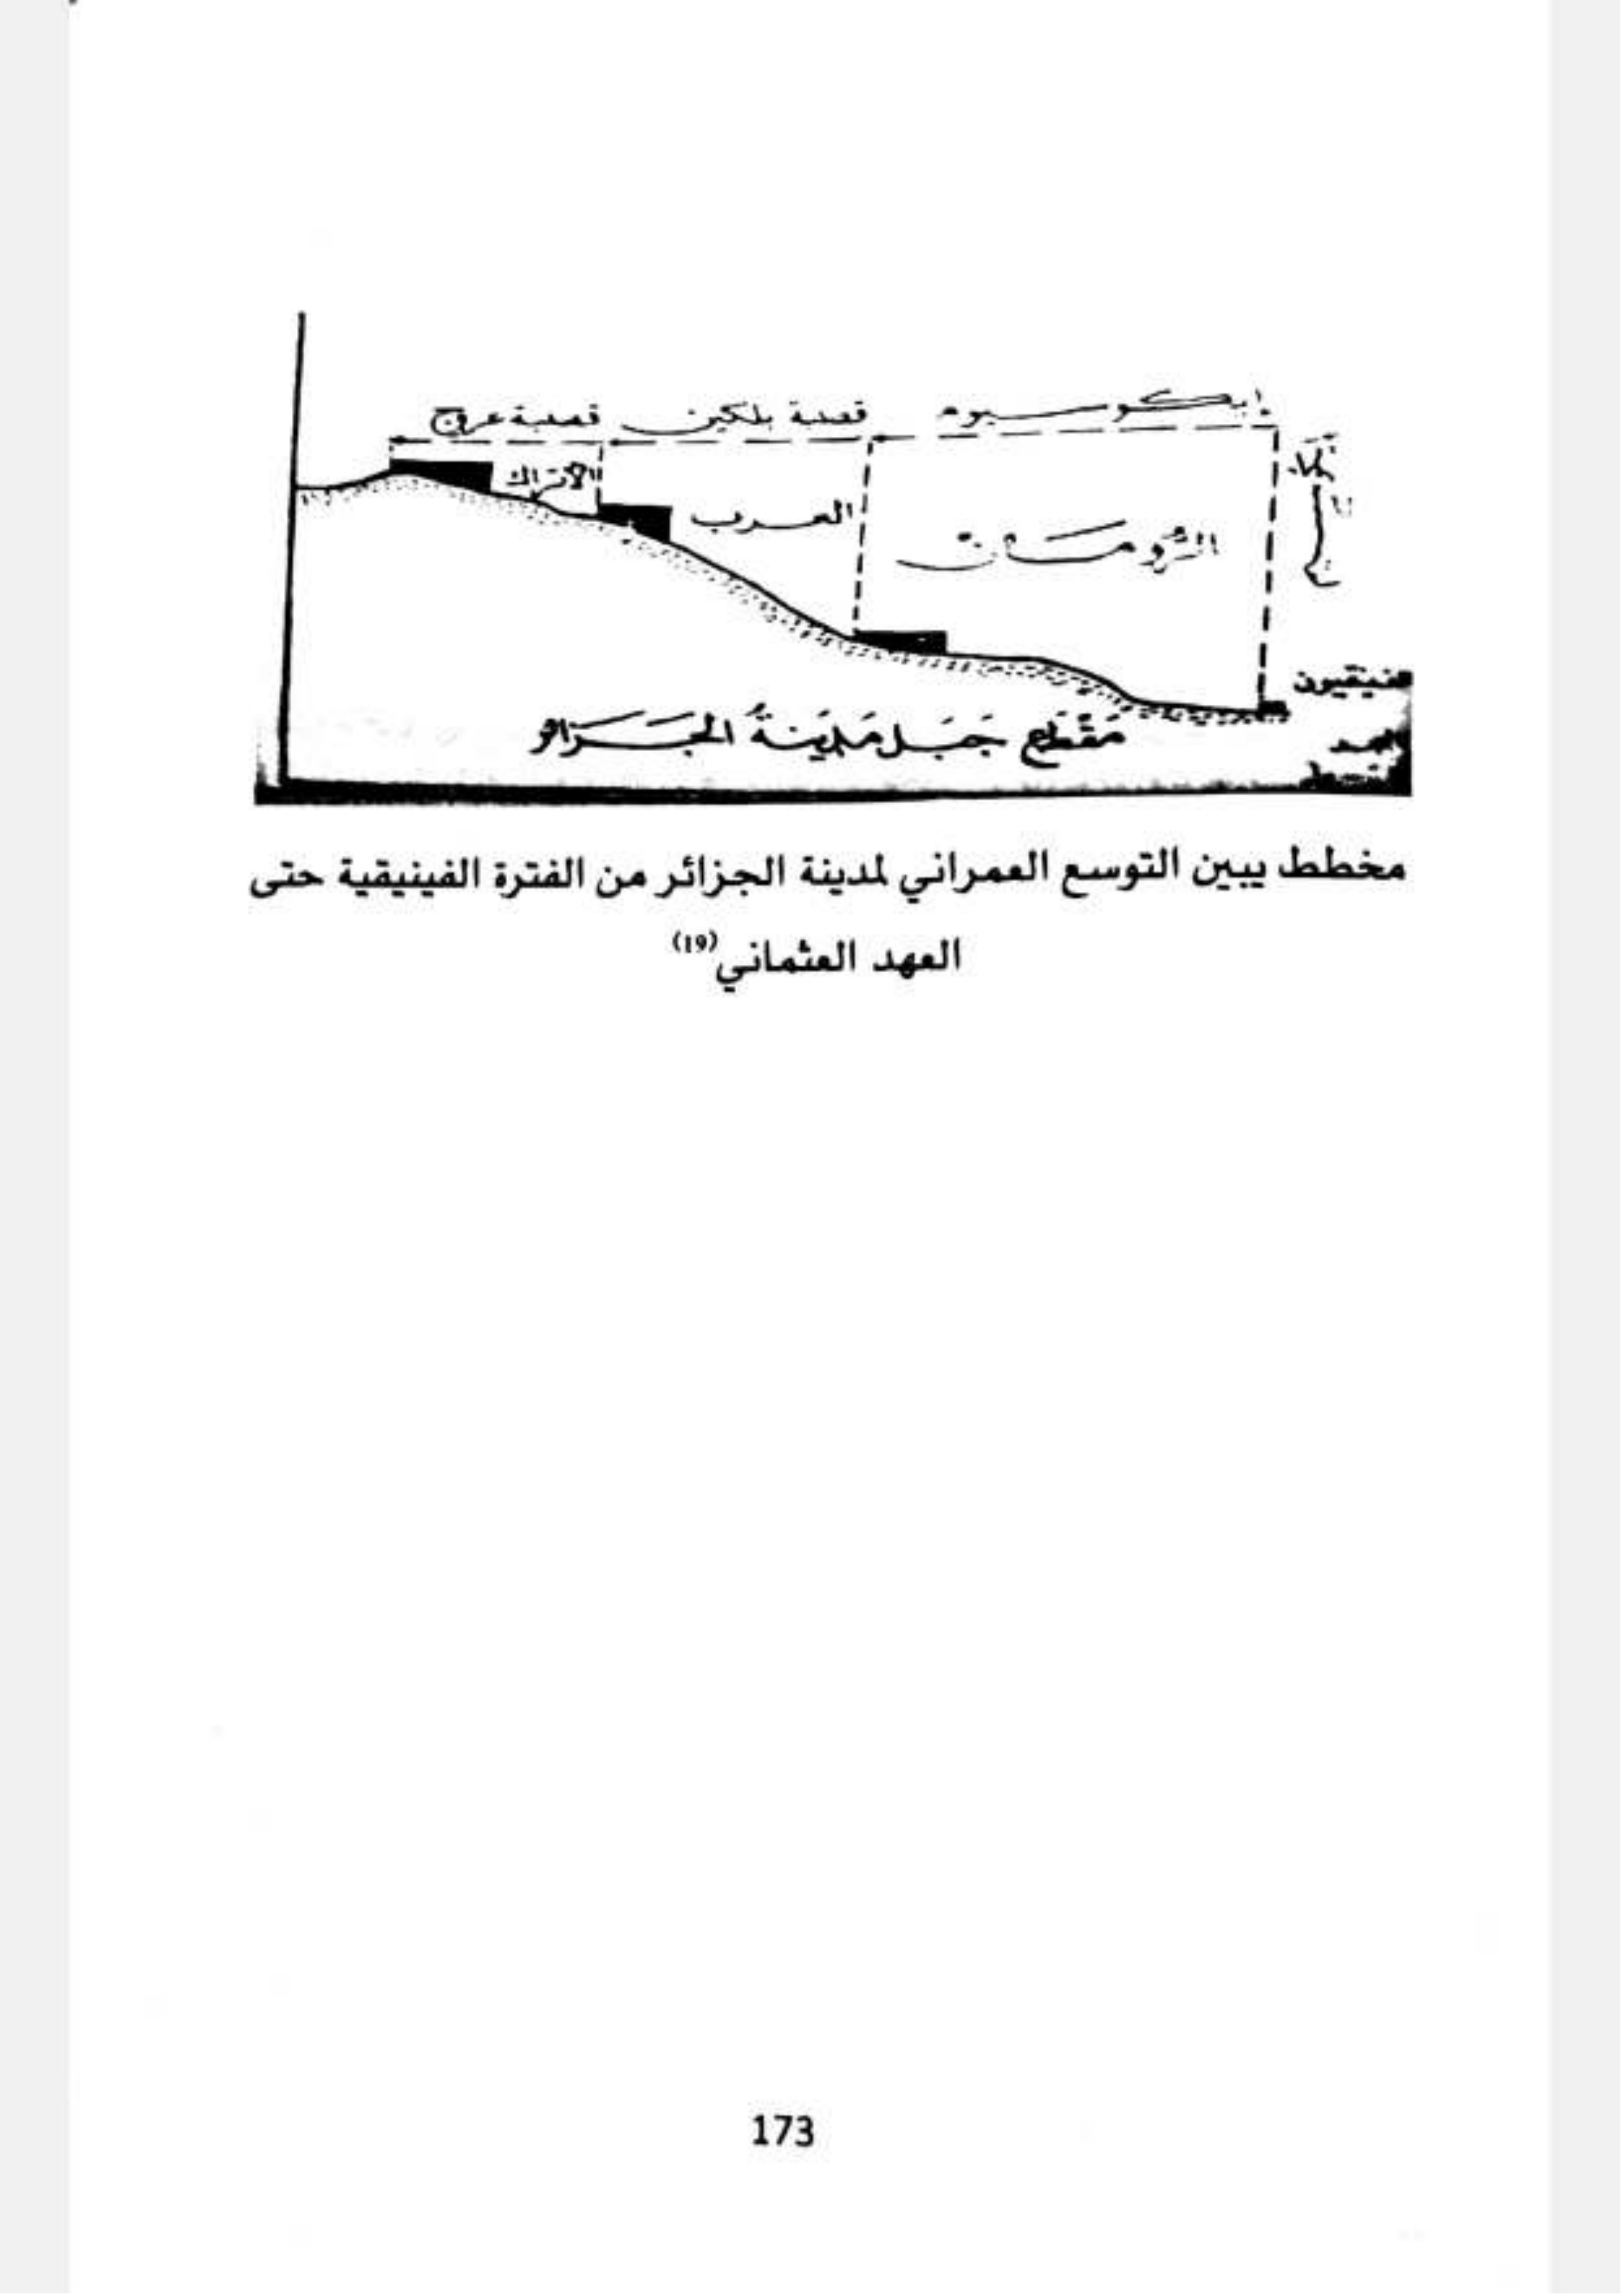 إيكوسيوم
قصبة بلكين
قصبة عروج
الأتراك
العرب
الرومان
فنيقيون
مَقْطَع جَبَل مَدِينَةُ الجَزَائر
مخطط يبين التوسع العمراني لمدينة الجزائر من الفترة الفينيقية حتى
العهد العثماني(19)
173